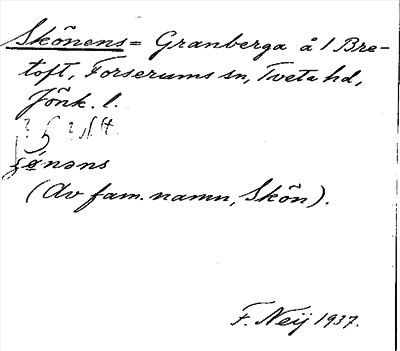 Skönens = Granberga å 1 Bre-
toft, Forserums sn, Tveta hd,
Jönk. l.
ʃö́nəns
(Av fam. namn, Skön).
F. Neij 1937.